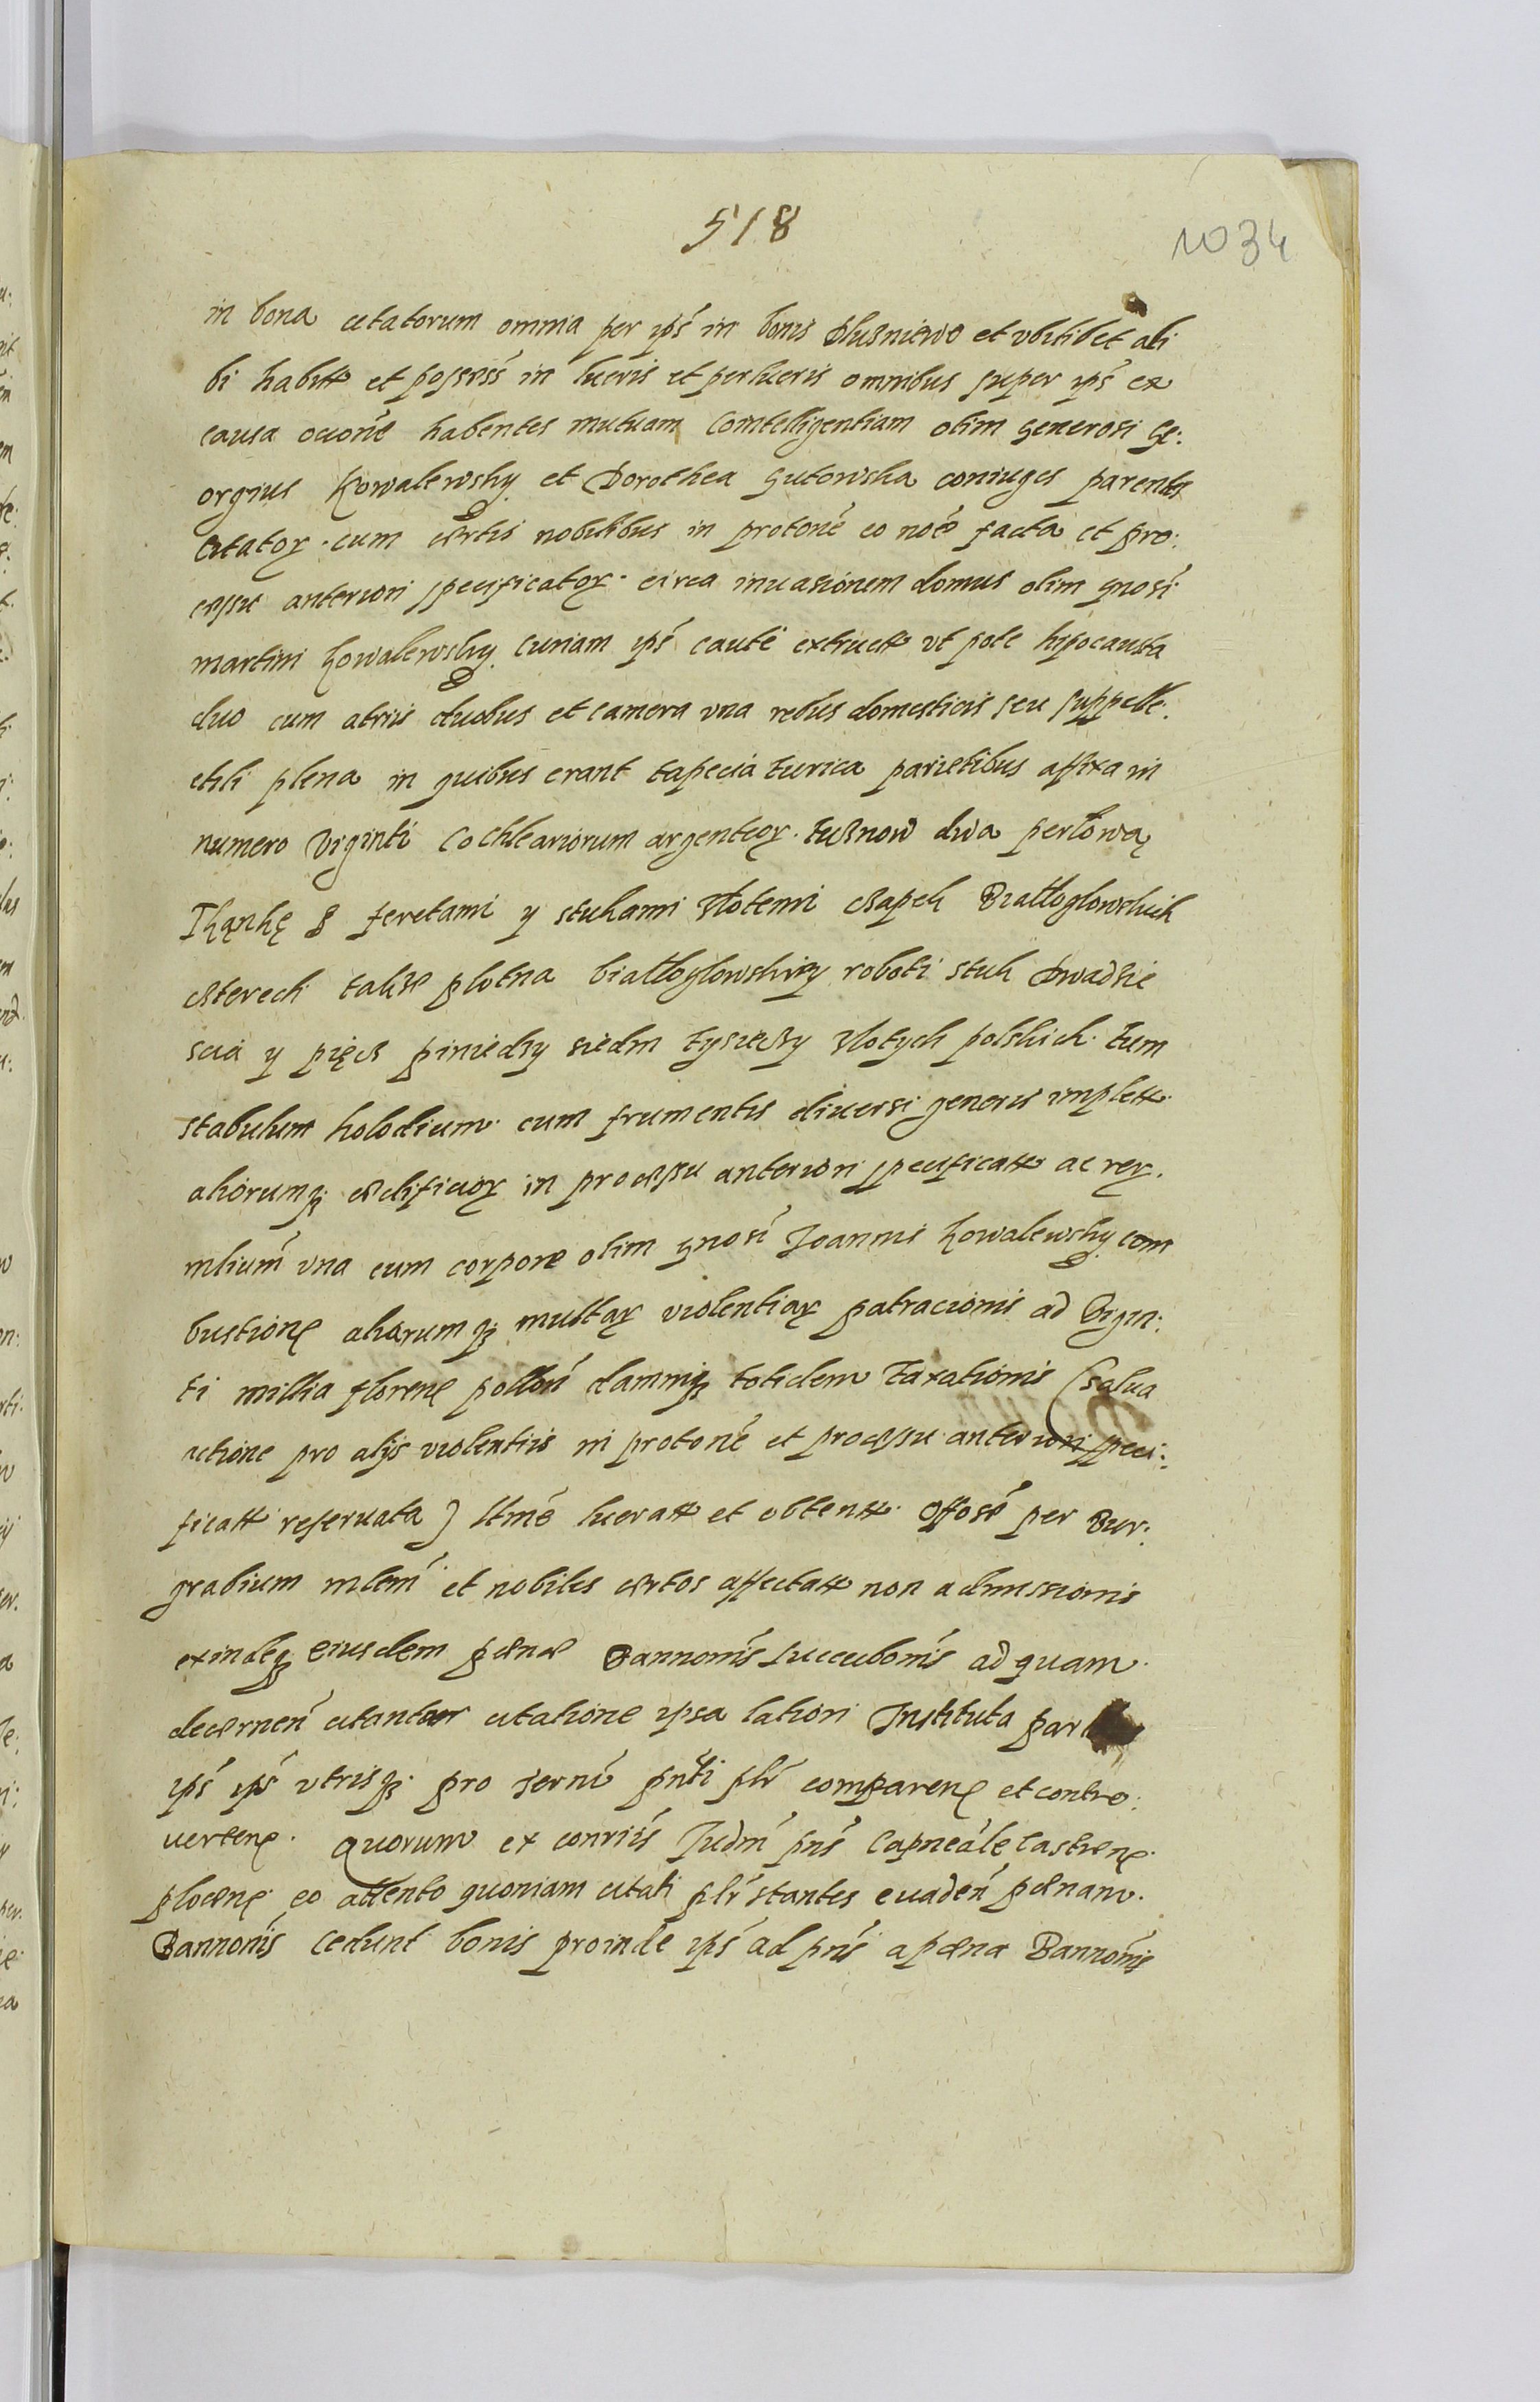 518
1034
in bona citatorum omnia per ips in bonis Plusniewo et vbilibet ali
bi habitt et possess in lucris et perlucris omnibus super ips ex
causa ocione habentes mutuam Cointelligentiam olim generosi Ge:
orgius Kowalewsky et Dorothea Gutowska coniuges parentes
Citator. cum certis nobilibus in protone eo noie facta et pro:
cessu anteriori specificator. circa inuasionem domus olim gnosi
martini Kowalewsky Curiam ips caute extructt vt pote hipocausta
duo cum atriis duobus et camera vna rebus domesticis seu suppelle:
ctili plena in quibus erant tapecia turica parietibus affixa in
numero Viginti Cochleariorum argenteor. tusnow dwa perlową
Tkąnkę z feretami y stukami zlotemi czapek Bialloglowskich
czterech takze plotna bialloglowskiey roboti stuk dwadzie
scia y pięcz piniedzy siedm tysieczy zlotych polskich. tum
stabulum holodium cum frumentis diuersi generis implett
aliorumq; aedificior in processu anteriori specificatt ac rer.
mlium vna cum corpore olim gnosi Joannis Kowalewsky com
bustione aliarumq; multar violentiar patracionis ad Vigin:
ti millia floren pollon damniq; totidem taxationis (salua
actione pro alijs violentiis in protone et processu anteriori speci:
ficatt reseruata) ltme lucratt et obtentt. Offose per Bur:
grabium mlem et nobiles certos affectatt non admissionis
exindeq; eiusdem paenae Bannonis succubonis ad quam
decernen citantur citatione ipsa latiori Instituta
ips ips vtrisq; pro termi pnti plr comparen et contro:
uerten. Quorum ex conriis Judm pns Capneale Castren
plocen eo attento quoniam citati plr stantes euaden paenam
Bannonis Cedunt bonis proinde ips ad pns a paena Bannonis